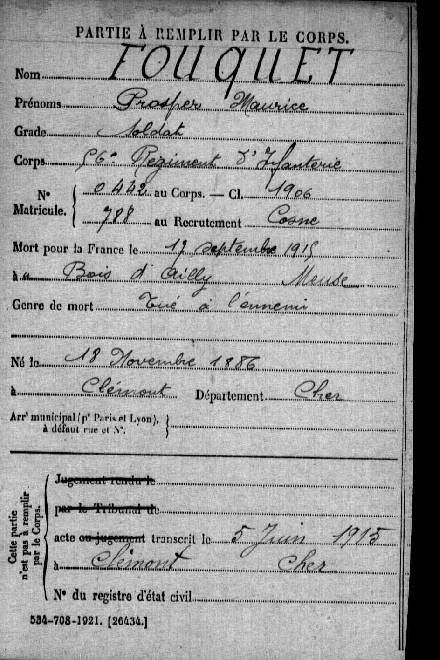 PARTIE À REMPLIR PAR LE CORPS.
Nom FOUQUET
Prénoms Prosper Maurice
Grade Soldat
Corps 56e Régiment d'Infanterie
N° Matricule. 0442 au Corps. — Cl. 1906
788 au Recrutement Cosne
Mort pour la France le septembre
à Bois d'Ailly Meuse
Genre de mort Tué à l'ennemi
Né le 18 Novembre 1886
à Clémont Département Cher
Arrt municipal (pr Paris et Lyon),
à défaut rue et N°.
Cette partie n'est pas à remplir par le Corps.
Jugement rendu le
par le Tribunal de
acte ou jugement transcrit le 5 Juin 1915
à Clémont Cher
N° du registre d'état civil
534-708-1921. [26434.]